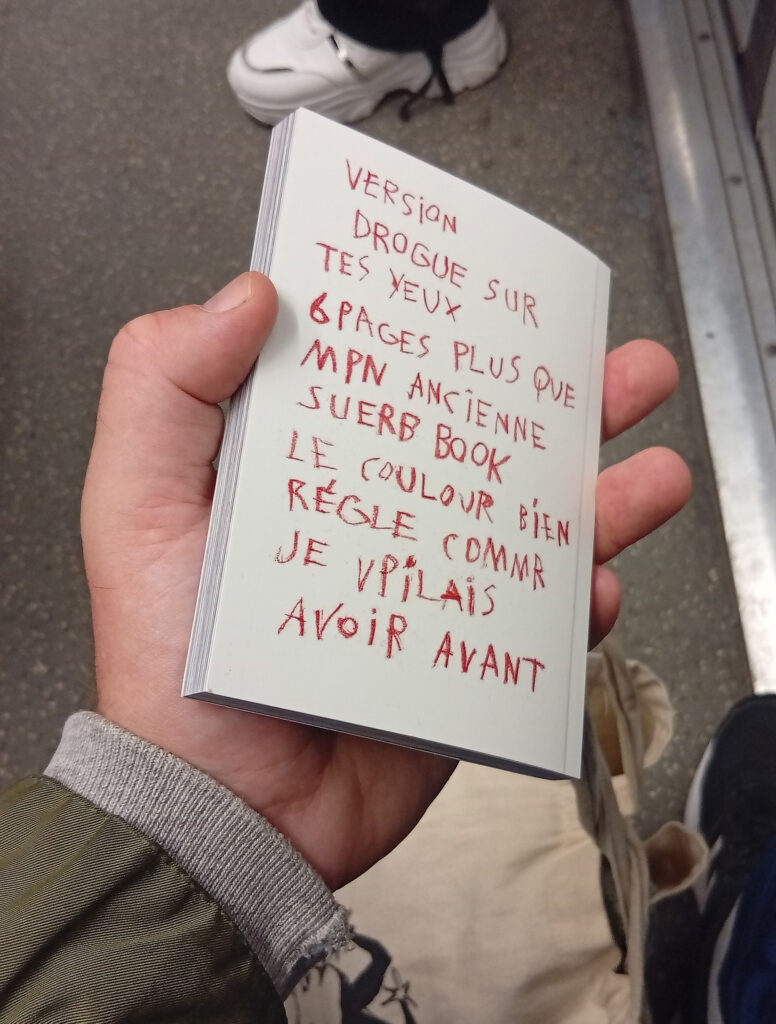 VERSION
DROGUE SUR
TES YEUX
6 PAGES PLUS QUE
MPN ANCIENNE
SUERB BOOK
LE COULOUR BIEN
RÉGLE COMMR
JE VPILAIS
AVOIR AVANT